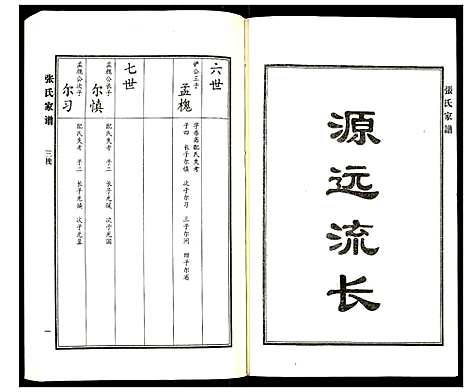 張氏家譜
源远流长
六世
铲公三子
孟槐
字 配氏失考
子四 长子尔慎 次子尔习 三子尔问 四子尔
七世
孟槐公长子
尔慎
配氏失考 子二 长子光 次子光国
孟槐公次子
尔习
配氏失考 子二 长子光 次子光
张氏家谱
三
一